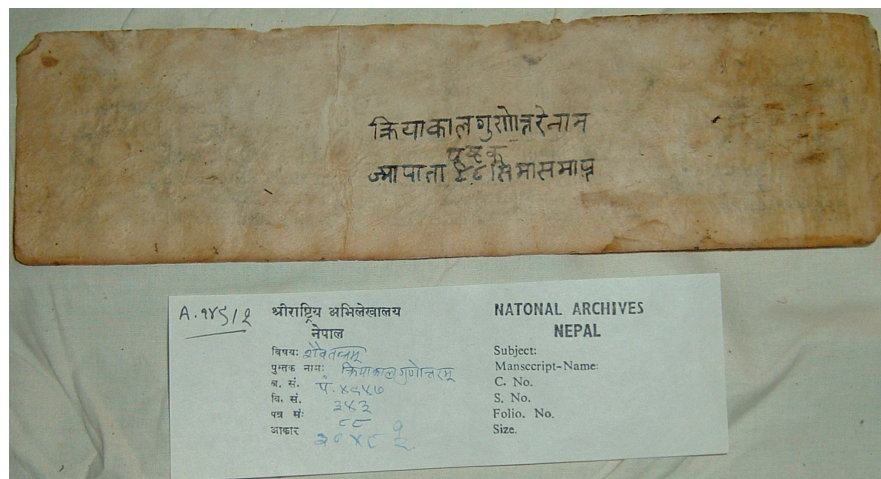 क्रियाकालगुणोत्तरेनाम
पुस्तक
ज्मा पाता ४८ सिमासमाप्त
A.१४९/२
श्रीराष्ट्रिय अभिलेखालय
नेपाल
विषयः शैवतन्त्रम्
पुस्तक नामः क्रियाकालगुणोत्तरम्
ब. सं. पं. ४९४७
वि. सं. ३४३
पत्र सं: ८८
आकार
NATONAL ARCHIVES
NEPAL
Subject:
Mansccript-Name:
C. No.
S. No.
Folio. No.
Size.